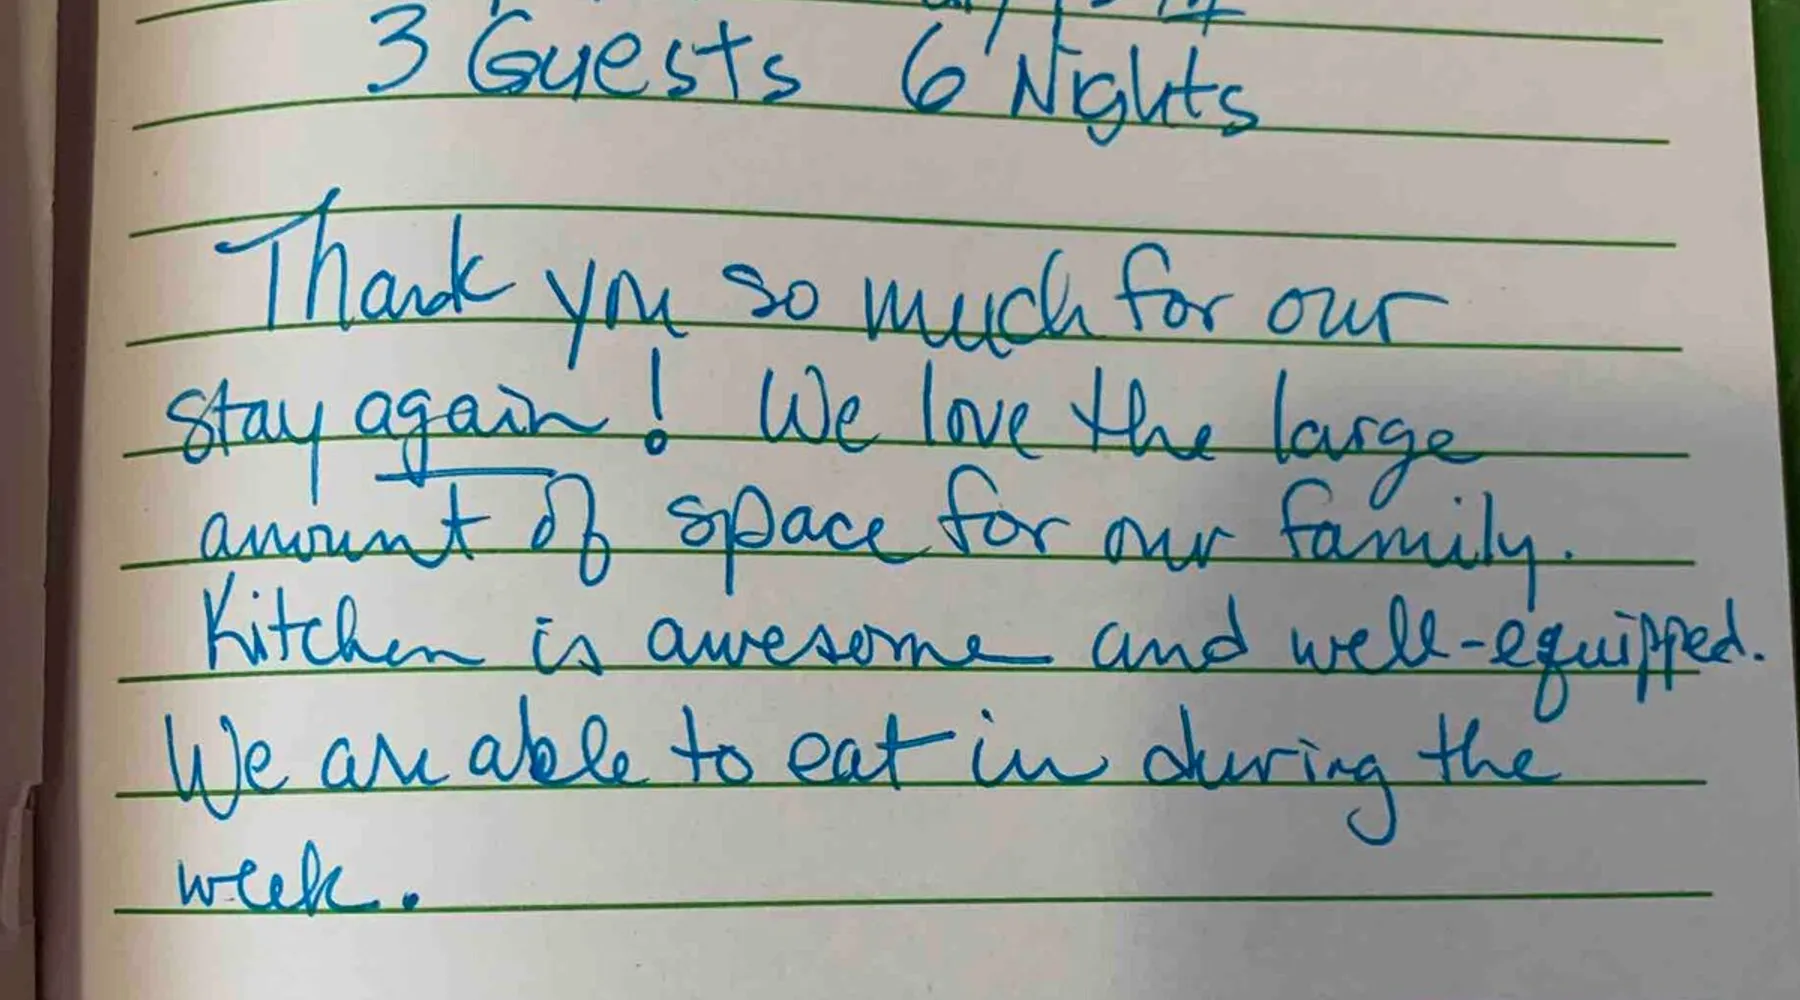 3 Guests 6 Nights
Thank you so much for our
stay again! We love the large
amount of space for our family.
Kitchen is awesome and well-equipped.
We are able to eat in during the
week.